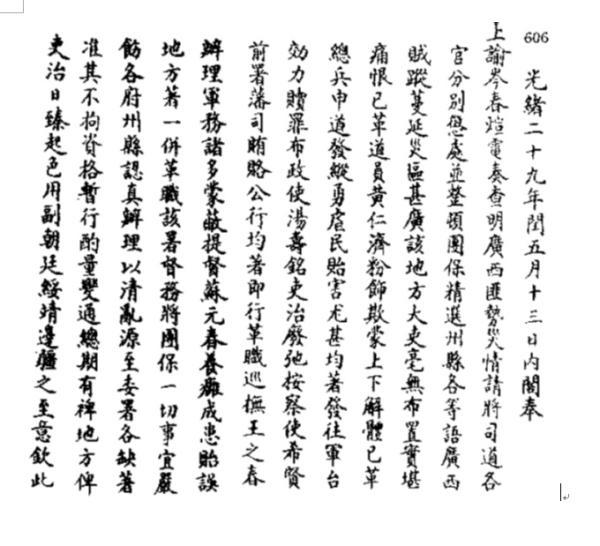 606
光緒二十九年閏五月十三日內閣奉
上諭岑春煊電奏查明廣西匪勢災情請將司道各
官分別懲處並整頓團保精選州縣各等語廣西
賊蹤蔓延災區甚廣該地方大吏毫無布置實堪
痛恨已革道員黃仁濟粉飾欺蒙上下解體已革
總兵申道發縱勇虐民貽害尤甚均著發往軍台
効力贖罪布政使湯壽銘吏治廢弛按察使希賢
前署藩司賄賂公行均著即行革職巡撫王之春
辦理軍務諸多蒙蔽提督蘇元春養癰成患貽誤
地方著一併革職該署督務將團保一切事宜嚴
飭各府州縣認真辦理以清亂源至委署各缺著
准其不拘資格暫行酌量變通總期有裨地方俾
吏治日臻起色用副朝廷綏靖邊疆之至意欽此